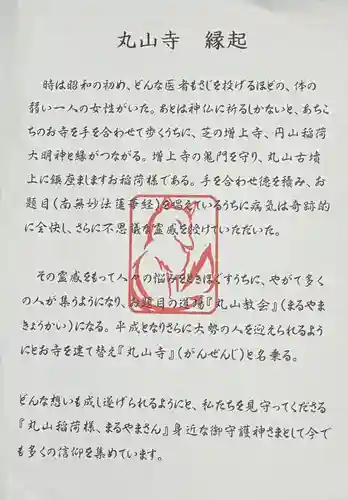 丸山寺 縁起
時は昭和の初め、どんな医者もさじを投げるほどの、体の
弱い一人の女性がいた。あとは神仏に祈るしかないと、あちこ
ちのお寺を手を合わせて歩くうちに、芝の増上寺、円山稲荷
大明神と縁がつながる。増上寺の鬼門を守り、丸山古墳
上に鎮座ましますお稲荷様である。手を合わせ徳を積み、お
題目(南無妙法蓮華経)を唱えているうちに病気は奇跡的
に全快し、さらに不思議な霊感を授けていただいた。
その霊感をもって人々の悩みをときほぐすうちに、やがて多く
の人が集うようになり、お題目の道場『丸山教会』(まるやま
きょうかい)になる。平成となりさらに大勢の人を迎えられるよう
にとお寺を建て替え『丸山寺』(がんぜんじ)と名乗る。
どんな想いも成し遂げられるようにと、私たちを見守ってくださる
『丸山稲荷様、まるやまさん』身近な御守護神さまとして今で
も多くの信仰を集めています。